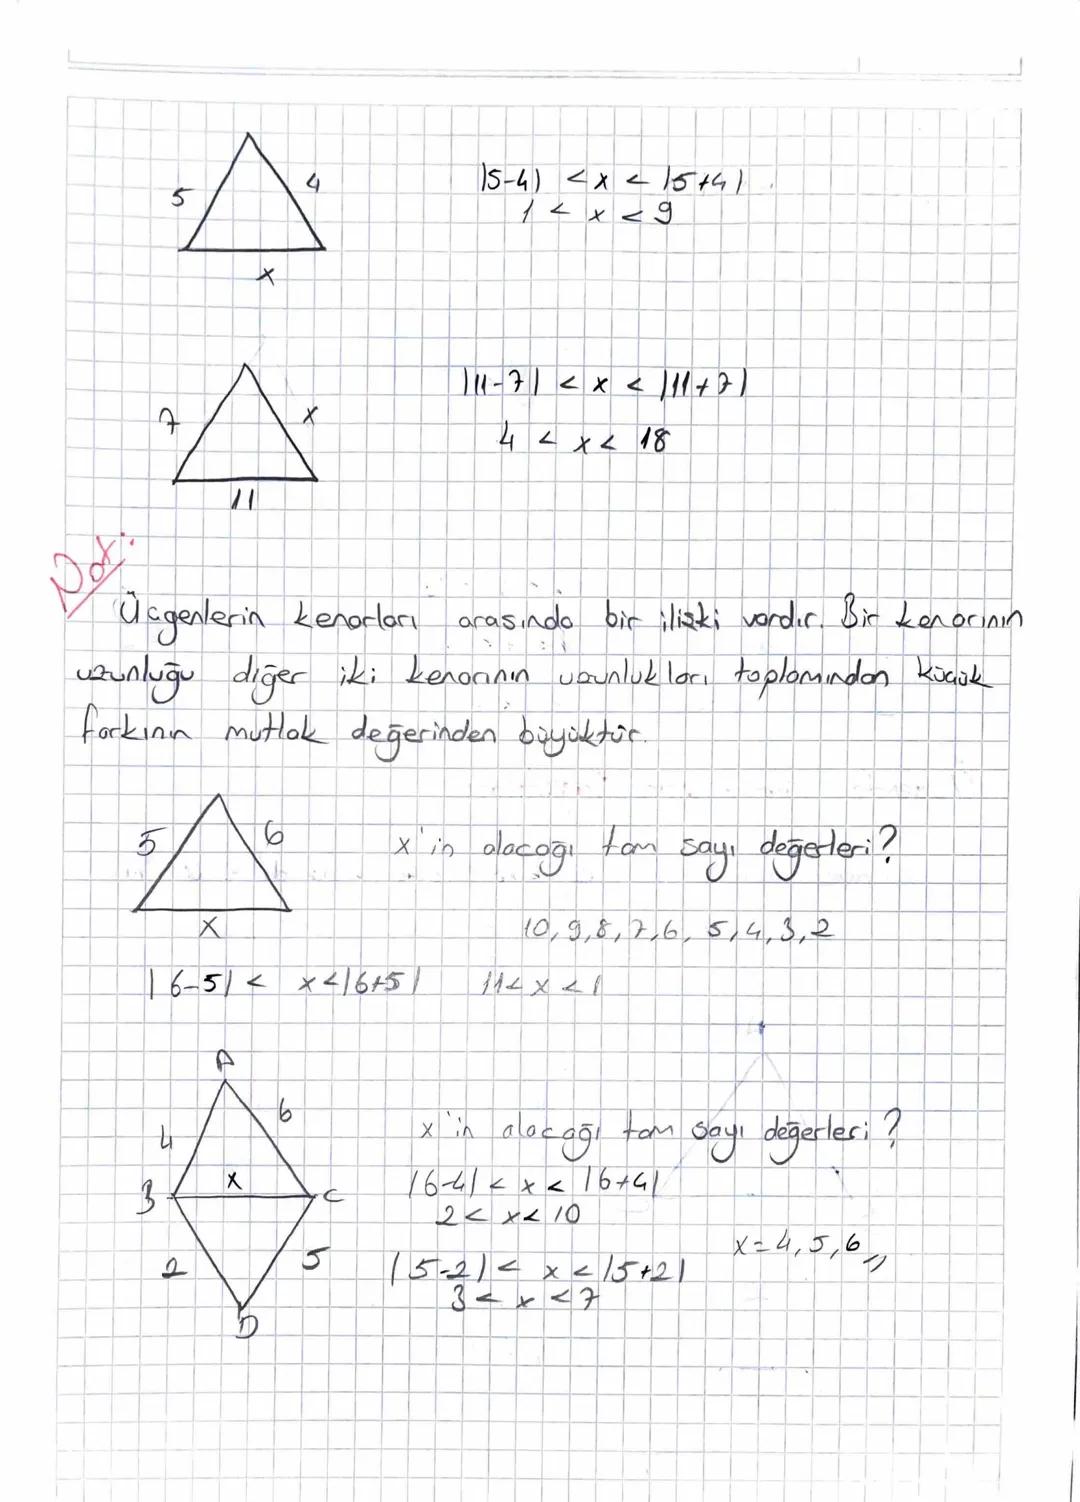 5
4
|5-4| < x < |5+4|
1 < x < 9
x
7
x
|11-7| < x < |11+7|
4 < x < 18
11
Not:
Üçgenlerin kenarları arasında bir ilişki vardır. Bir kenarının
uzunluğu diğer iki kenarının uzunlukları toplamından küçük
farkının mutlak değerinden büyüktür.
5
6
x'in alacağı tam sayı değerleri?
x
10, 9, 8, 7, 6, 5, 4, 3, 2
|6-5| < x < |6+5|
11 < x < 1
A
4
6
x'in alacağı tam sayı değerleri?
B
x
C
|6-4| < x < |6+4|
2 < x < 10
x = 4, 5, 6,,
2
5
|5-2| < x < |5+2|
3 < x < 7
D